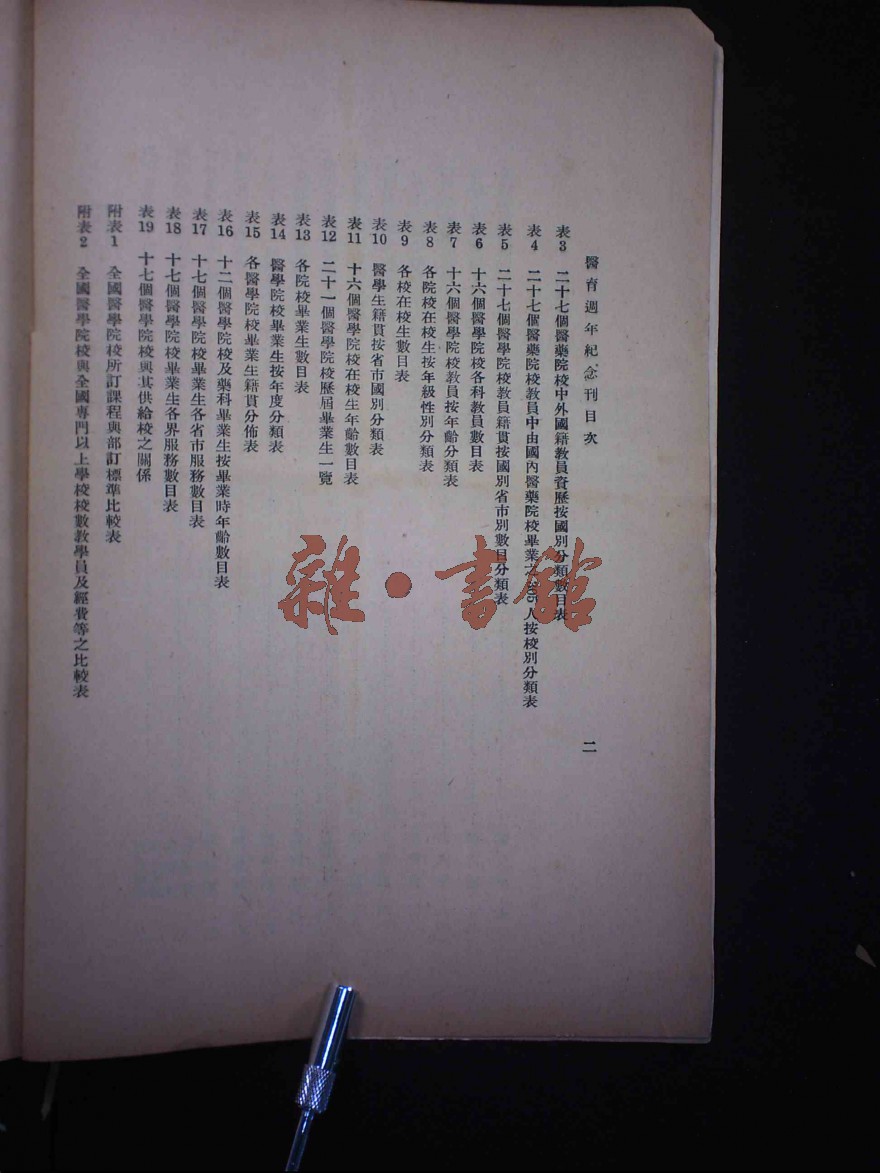 醫育週年紀念刊目次
二
表3 二十七個醫藥院校中外國籍教員資歷按國別分類數目表
表4 二十七個醫藥院校教員中由國內醫藥院校畢業之 人按校別分類表
表5 二十七個醫學院校教員籍貫按國別省市別數目分類表
表6 十六個醫學院校各科教員數目表
表7 十六個醫學院校教員按年齡分類表
表8 各院校在校生按年級性別分類表
表9 各校在校生數目表
表10 醫學生籍貫按省市國別分類表
表11 十六個醫學院校在校生年齡數目表
表12 二十一個醫學院校歷屆畢業生一覽
表13 各院校畢業生數目表
表14 醫學院校畢業生按年度分類表
表15 各醫學院校畢業生籍貫分佈表
表16 十二個醫學院校及藥科畢業生按畢業時年齡數目表
表17 十七個醫學院校畢業生各省市服務數目表
表18 十七個醫學院校畢業生各界服務數目表
表19 十七個醫學院校與其供給校之關係
附表1 全國醫學院校所訂課程與部訂標準比較表
附表2 全國醫學院校與全國專門以上學校校數教學員及經費等之比較表
雜·書館